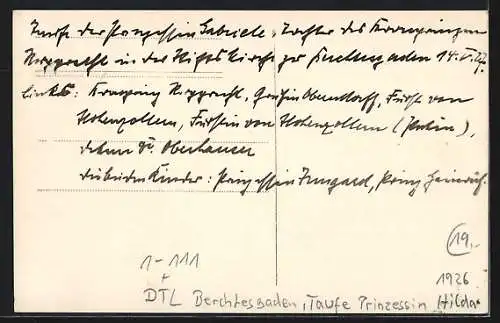 Taufe der Prinzessin Gabriele, Tochter des Kronprinzen
Rupprecht in der Stiftskirche zu 14.V.27.
links: Kronprinz Rupprecht, Gräfin Fürst von
Hohenzollern, Fürstin von Hohenzollern (Patin),
die beiden Kinder: Prinzessin Irmgard, Prinz Heinrich.
19,-
1-111
1926
DTL Berchtesgaden, Taufe Prinzessin Hilda